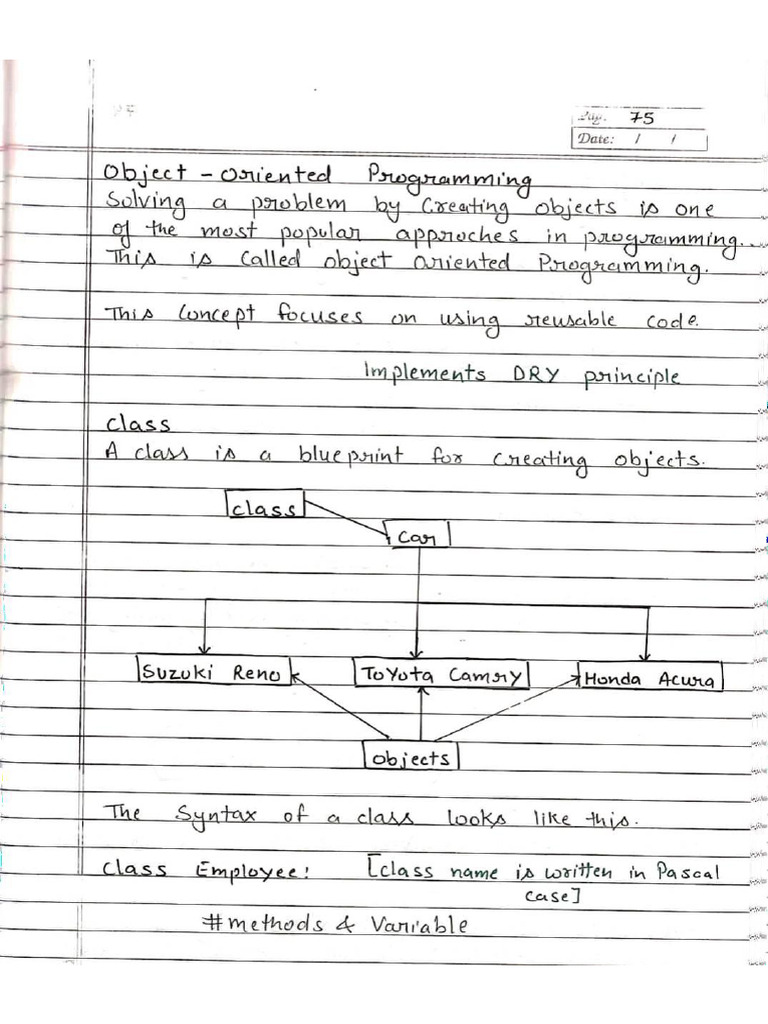 Pag. 75
Date: / /
Object - Oriented Programming
Solving a problem by Creating objects is one
of the most popular approches in programming.
This is called object oriented Programming.
This concept focuses on using reusable code.
Implements DRY principle
class
A class is a blueprint for creating objects.
class
Car
Suzuki Reno
Toyota Camry
Honda Acura
objects
The Syntax of a class looks like this.
Class Employee:
[class name is written in Pascal
case]
#methods & Variable